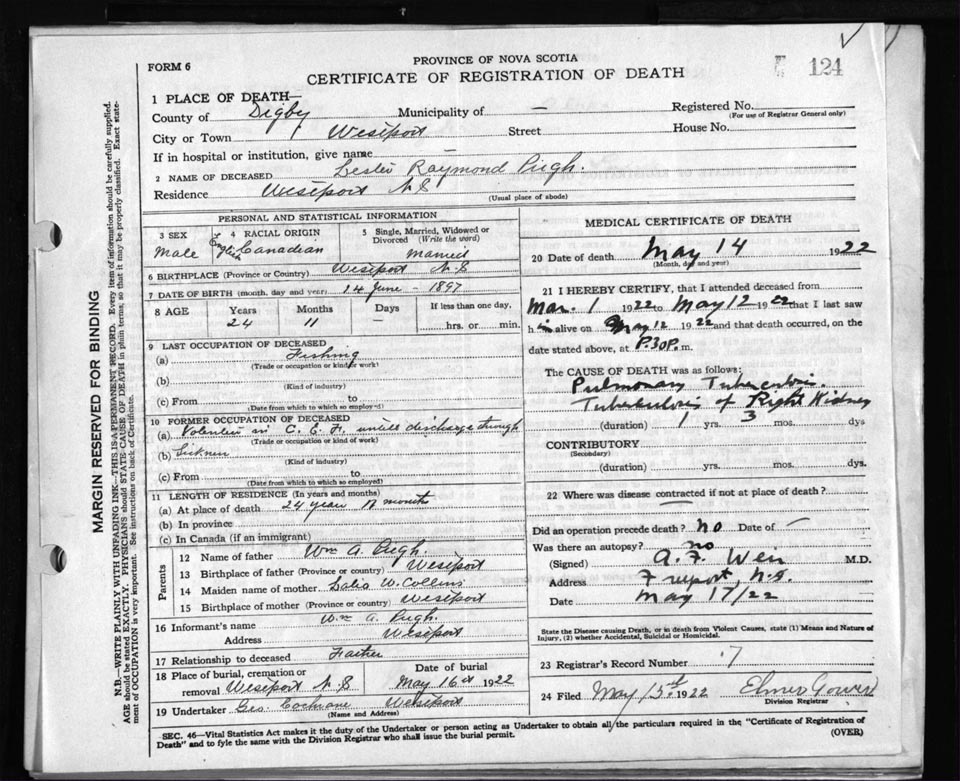 FORM 6
PROVINCE OF NOVA SCOTIA
CERTIFICATE OF REGISTRATION OF DEATH
124
1 PLACE OF DEATH—
County of Digby Municipality of —
Registered No.
(For use of Registrar General only)
City or Town Westport Street House No.
If in hospital or institution, give name —
2 NAME OF DECEASED Lester Raymond Pugh.
Residence Westport N.S
(Usual place of abode)
PERSONAL AND STATISTICAL INFORMATION
3 SEX
Male
4 RACIAL ORIGIN
English Canadian
5 Single, Married, Widowed or Divorced (Write the word)
Married
6 BIRTHPLACE (Province or Country) Westport N.S
7 DATE OF BIRTH (month, day and year) 14 June - 1897
8 AGE
Years
24
Months
11
Days
—
If less than one day,
hrs. or min.
9 LAST OCCUPATION OF DECEASED
(a) Fishing
(Trade or occupation or kind of work)
(b)
(Kind of industry)
(c) From to
(Date from which to which so employed)
10 FORMER OCCUPATION OF DECEASED
(a) Volenteer in C. E. F. untill discharge through
(Trade or occupation or kind of work)
(b) Sickness
(Kind of industry)
(c) From to
(Date from which to which so employed)
11 LENGTH OF RESIDENCE (In years and months)
(a) At place of death 24 years 11 months
(b) In province
(c) In Canada (if an immigrant)
Parents
12 Name of father Wm A. Pugh.
13 Birthplace of father (Province or country) Westport
14 Maiden name of mother W. Collins
15 Birthplace of mother (Province or country) Westport
16 Informant's name Wm A. Pugh.
Address Westport
17 Relationship to deceased Father
18 Place of burial, cremation or removal Westport N.S
Date of burial
May 16th 1922
19 Undertaker Geo. Cochrane Westport
(Name and Address)
MEDICAL CERTIFICATE OF DEATH
20 Date of death May 14 1922
(Month, day and year)
21 I HEREBY CERTIFY, that I attended deceased from
Mar. 1 1922 to May 12 1922 that I last saw
him alive on May 12 1922 and that death occurred, on the
date stated above, at P.30P.m.
The CAUSE OF DEATH was as follows:
Pulmonary Tuberculosis.
Tuberculosis of Right Kidney
(duration) 1 yrs. 3 mos. dys.
CONTRIBUTORY
(Secondary)
(duration) yrs. mos. dys.
22 Where was disease contracted if not at place of death?
Did an operation precede death? no Date of —
Was there an autopsy? no
(Signed) A. F. Weir M.D.
Address Freeport, N.S.
Date May 17/22
State the Disease causing Death, or in death from Violent Causes, state (1) Means and Nature of Injury, (2) whether Accidental, Suicidal or Homicidal.
23 Registrar's Record Number 7
24 Filed May 15th 1922 Elmer Gower
Division Registrar
SEC. 46—Vital Statistics Act makes it the duty of the Undertaker or person acting as Undertaker to obtain all the particulars required in the "Certificate of Registration of
Death" and to fyle the same with the Division Registrar who shall issue the burial permit.
(OVER)
MARGIN RESERVED FOR BINDING
N.B.—WRITE PLAINLY WITH UNFADING INK—THIS IS A PERMANENT RECORD. Every item of information should be carefully supplied.
AGE should be stated EXACTLY. PHYSICIANS should STATE CAUSE OF DEATH in plain terms, so that it may be properly classified. Exact state-
ment of OCCUPATION is very important. See instructions on back of Certificate.